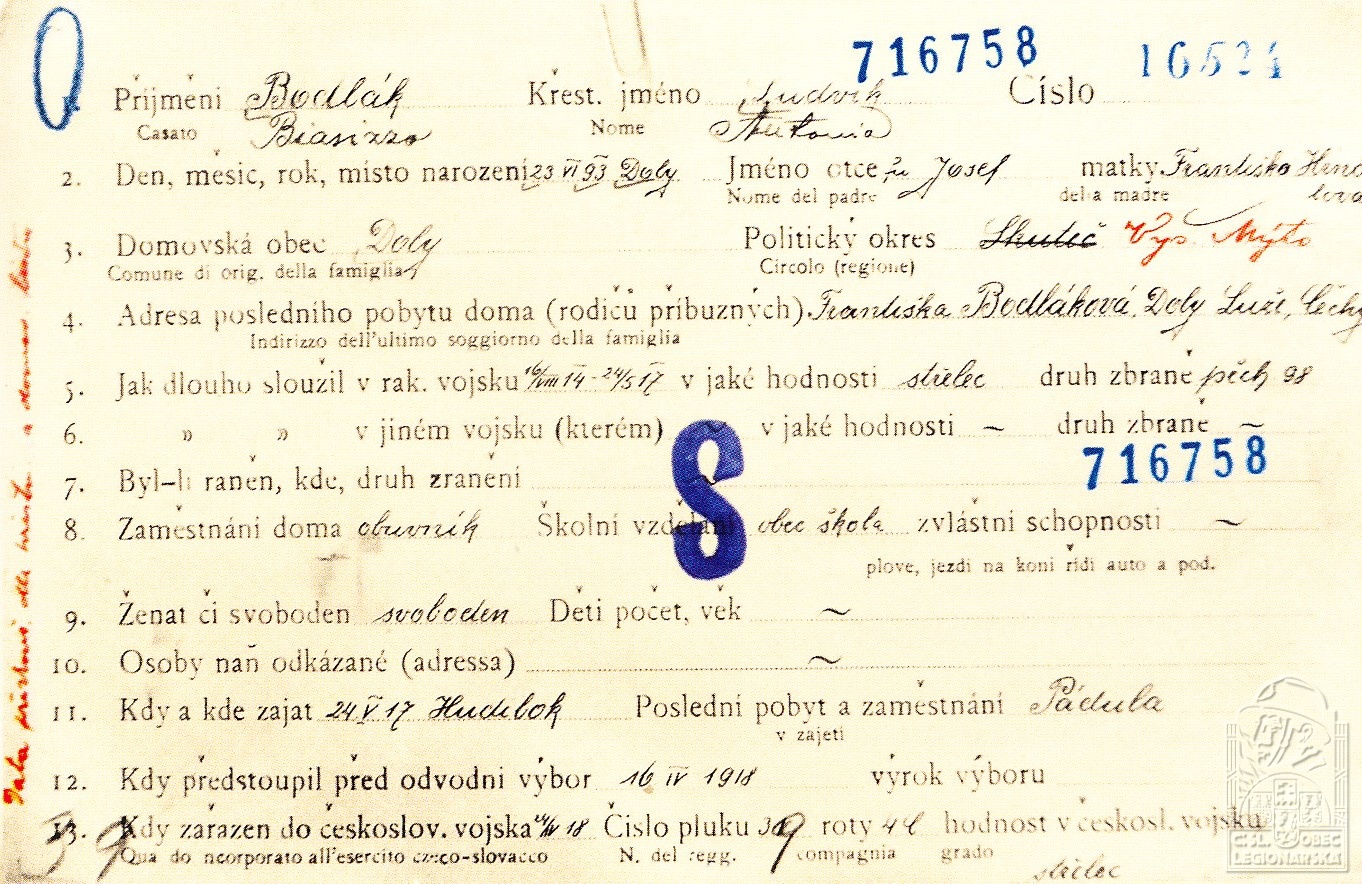 716758 16524
1. Příjmění Bodlák Křest. jméno Ludvík Číslo
Casato Biasizzo Nome Antonio
2. Den, měsíc, rok, místo narození 23 VI 93 Doly Jméno otce Josef matky Františka
Nome del padre della madre
3. Domovská obec Doly Politický okres Skuteč Vys. Mýto
Comune di orig. della famiglia Circolo (regione)
4. Adresa posledního pobytu doma (rodičů příbuzných) Františka Bodláková, Doly Luže, Čechy
Indirizzo dell'ultimo soggiorno della famiglia
5. Jak dlouho sloužil v rak. vojsku 16/VIII 14 - 24/5 17 v jaké hodnosti střelec druh zbraně pěch 98
6. » » v jiném vojsku (kterém) ~ v jaké hodnosti ~ druh zbraně ~
716758
7. Byl-li raněn, kde, druh zranění
8
8. Zaměstnání doma obuvník Školní vzdělání obec škola zvláštní schopnosti ~
plove, jezdí na koni řídí auto a pod.
9. Ženat či svoboden svoboden Děti počet, věk ~
10. Osoby naň odkázané (adressa) ~
11. Kdy a kde zajat 24 V 17 Hudilok Poslední pobyt a zaměstnání Pádula
v zajetí
12. Kdy předstoupil před odvodní výbor 16 IV 1918 výrok výboru
13. Kdy zařazen do českoslov. vojska 24/IV 18 Číslo pluku 39 roty 4 hodnost v českosl. vojsku
39 Qua do ncorporato all'esercito czeco-slovacco N. del regg. compagnia grado
střelec
ČSL. OBEC
LEGIONÁŘSKÁ